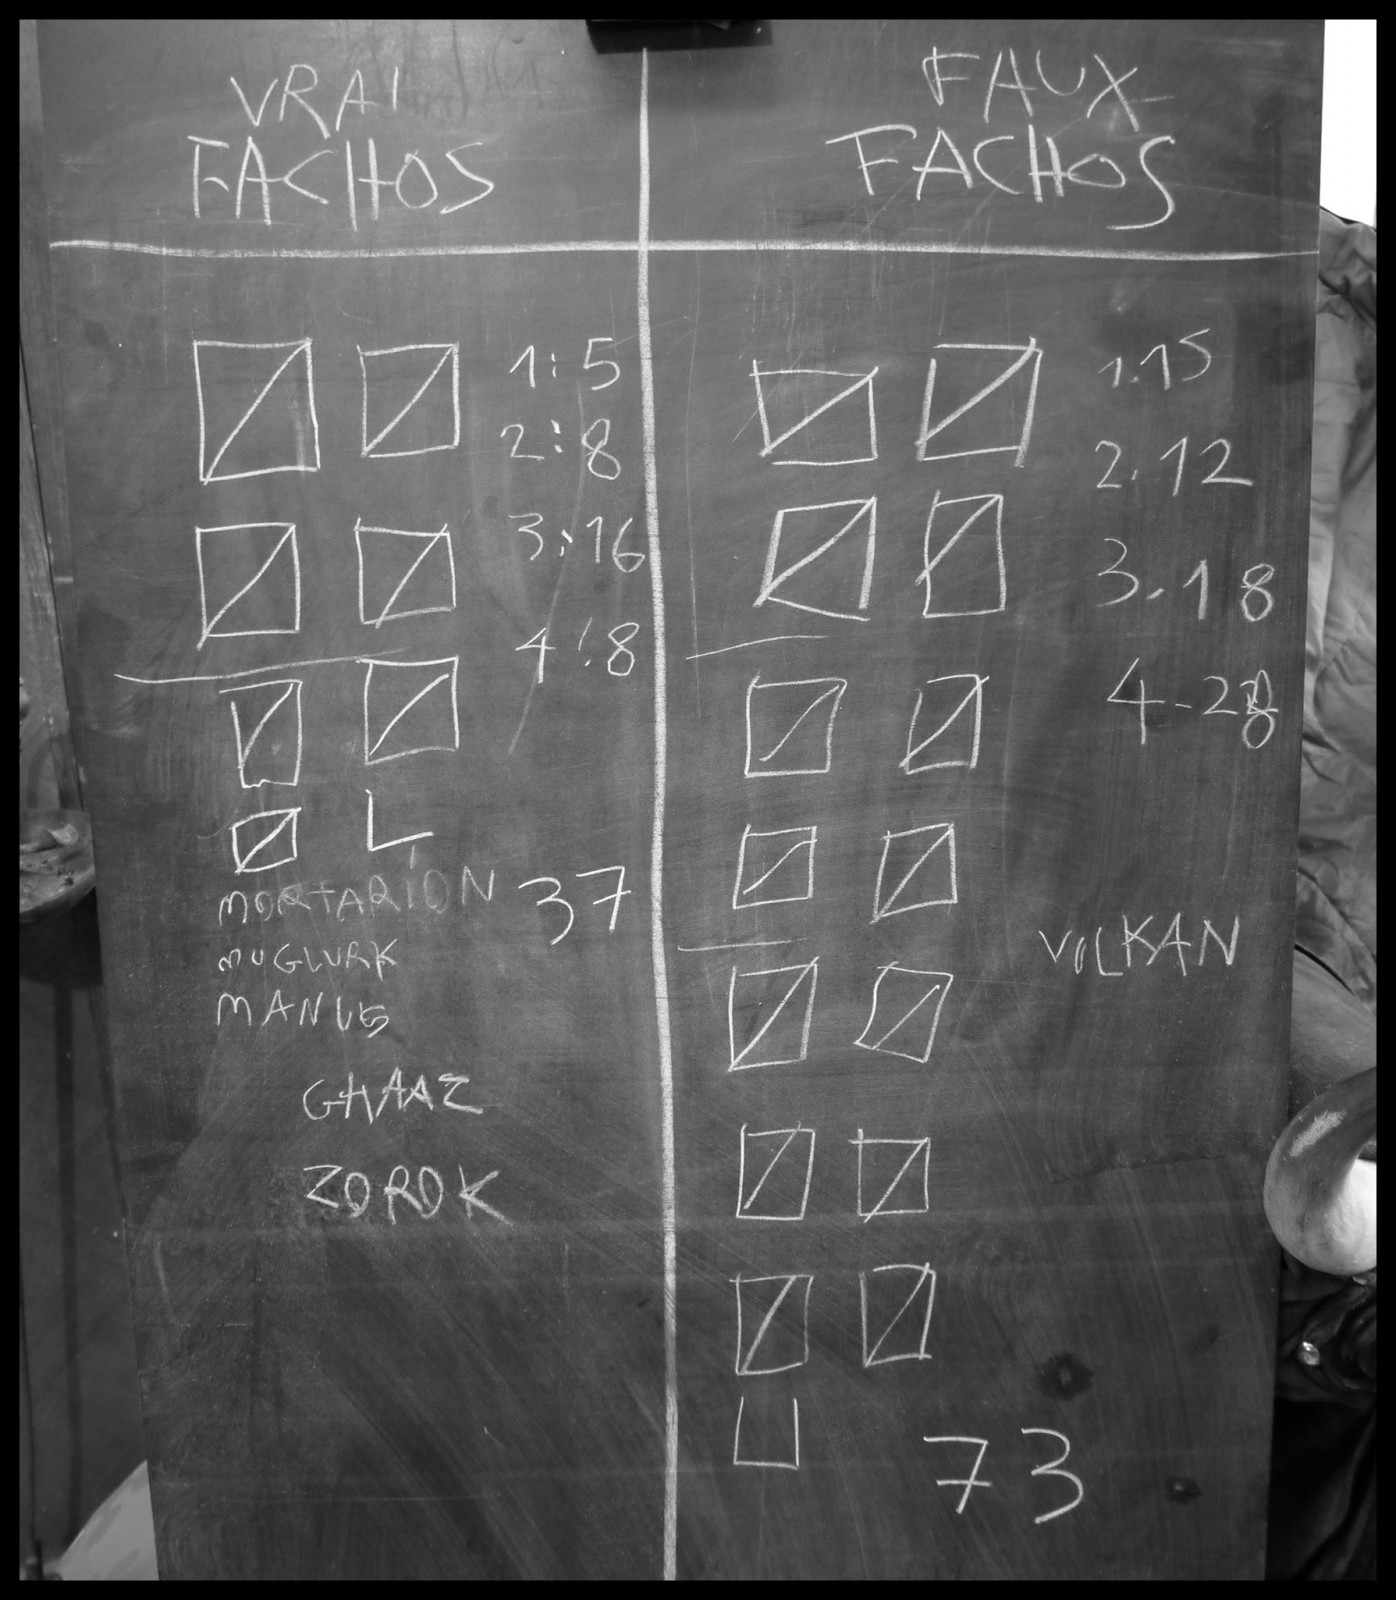 VRAI
FACHOS
1:5
2:8
3:16
4:8
MORTARION
37
MUGLURK
MANUS
GHAAZ
ZOROK
FAUX
FACHOS
1.15
2.12
3.18
4-28
VULKAN
73